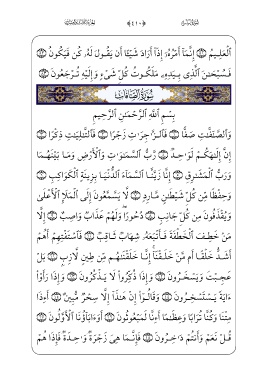 ﴿٤١٠﴾
ٱلْعَلِيمُ ۝ إِنَّمَآ أَمْرُهُۥٓ إِذَآ أَرَادَ شَيْـًٔا أَن يَقُولَ لَهُۥ كُن فَيَكُونُ ۝
فَسُبْحَـٰنَ ٱلَّذِى بِيَدِهِۦ مَلَكُوتُ كُلِّ شَىْءٍ وَإِلَيْهِ تُرْجَعُونَ ۝
سُورَةُ الصَّافَّاتِ
بِسْمِ ٱللَّهِ ٱلرَّحْمَـٰنِ ٱلرَّحِيمِ
وَٱلصَّـٰٓفَّـٰتِ صَفًّا ۝ فَٱلزَّٰجِرَٰتِ زَجْرًا ۝ فَٱلتَّـٰلِيَـٰتِ ذِكْرًا ۝
إِنَّ إِلَـٰهَكُمْ لَوَٰحِدٌ ۝ رَّبُّ ٱلسَّمَـٰوَٰتِ وَٱلْأَرْضِ وَمَا بَيْنَهُمَا
وَرَبُّ ٱلْمَشَـٰرِقِ ۝ إِنَّا زَيَّنَّا ٱلسَّمَآءَ ٱلدُّنْيَا بِزِينَةٍ ٱلْكَوَاكِبِ ۝
وَحِفْظًا مِّن كُلِّ شَيْطَـٰنٍ مَّارِدٍ ۝ لَّا يَسَّمَّعُونَ إِلَى ٱلْمَلَإِ ٱلْأَعْلَىٰ
وَيُقْذَفُونَ مِن كُلِّ جَانِبٍ ۝ دُحُورًا وَلَهُمْ عَذَابٌ وَاصِبٌ ۝ إِلَّا
مَنْ خَطِفَ ٱلْخَطْفَةَ فَأَتْبَعَهُۥ شِهَابٌ ثَاقِبٌ ۝ فَٱسْتَفْتِهِمْ أَهُمْ
أَشَدُّ خَلْقًا أَم مَّنْ خَلَقْنَآ إِنَّا خَلَقْنَـٰهُم مِّن طِينٍ لَّازِبٍ ۝ بَلْ
عَجِبْتَ وَيَسْخَرُونَ ۝ وَإِذَا ذُكِّرُوا۟ لَا يَذْكُرُونَ ۝ وَإِذَا رَأَوْا۟
ءَايَةً يَسْتَسْخِرُونَ ۝ وَقَالُوٓا۟ إِنْ هَـٰذَآ إِلَّا سِحْرٌ مُّبِينٌ ۝ أَءِذَا
مِتْنَا وَكُنَّا تُرَابًا وَعِظَـٰمًا أَءِنَّا لَمَبْعُوثُونَ ۝ أَوَءَابَآؤُنَا ٱلْأَوَّلُونَ ۝
قُلْ نَعَمْ وَأَنتُمْ دَٰخِرُونَ ۝ فَإِنَّمَا هِىَ زَجْرَةٌ وَٰحِدَةٌ فَإِذَا هُمْ